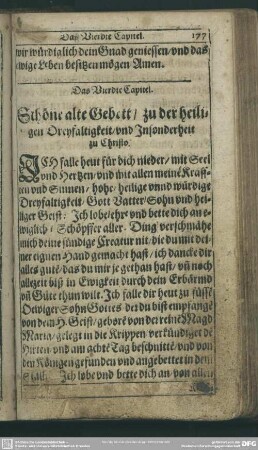 Das Vierdte Capitel. 177
wir würdiglich dein Gnad geniessen/vnd das
ewige Leben besitzen mögen Amen.
Das Vierdte Capitel.
Schöne alte Gebett/ zu der heili-
gen Dreyfaltigkeit/vnd Insonderheit
zu Christo.
ICH falle heut für dich nieder/ mit Seel
vnd Hertzen/ vnd mit allen meinē Kräff-
ten vnd Sinnen/ hohe/ heilige vnnd würdige
Dreyfaltigkeit/ Gott Vatter/ Sohn vnd hei-
liger Geist: Ich lobe/ehr vnd bette dich an e-
wiglich/ Schöpffer aller Ding/ verschmähe
mich deine sündige Creatur nit/ die du mit dei-
ner eignen Hand gemacht hast/ ich dancke dir
alles guts/ das du mir je gethan hast/ vñ noch
allezeit biß in Ewigkeit durch dein Erbärmd
vñ Güte thun wilt. Ich falle dir heut zu füsse
O ewiger Sohn Gottes/ der du bist empfange
von dem H. Geist/ geborē von der reinē Magd
Maria/ gelegt in die Krippen/ verkündiget dē
Hirten/ vnd am achtē Tag beschnittē/ vnd von
den Königen gefunden vnd angebettet in dem
Stall. Ich lobe vnd bette dich an/ von allen
DFG